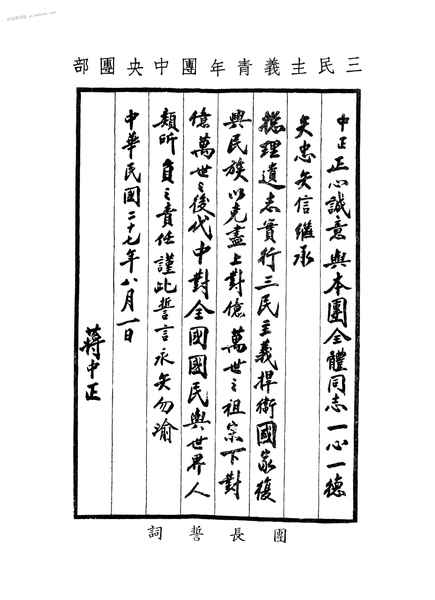 三民主義青年團中央團部
中正正心誠意與本團全體同志一心一德
矢忠矢信繼承
總理遺志實行三民主義捍衛國家復
興民族以克盡上對億萬世之祖宗下對
億萬世之後代中對全國國民與世界人
類所負之責任謹此誓言永矢勿渝
中華民國二十七年八月一日
蔣中正
團長誓詞